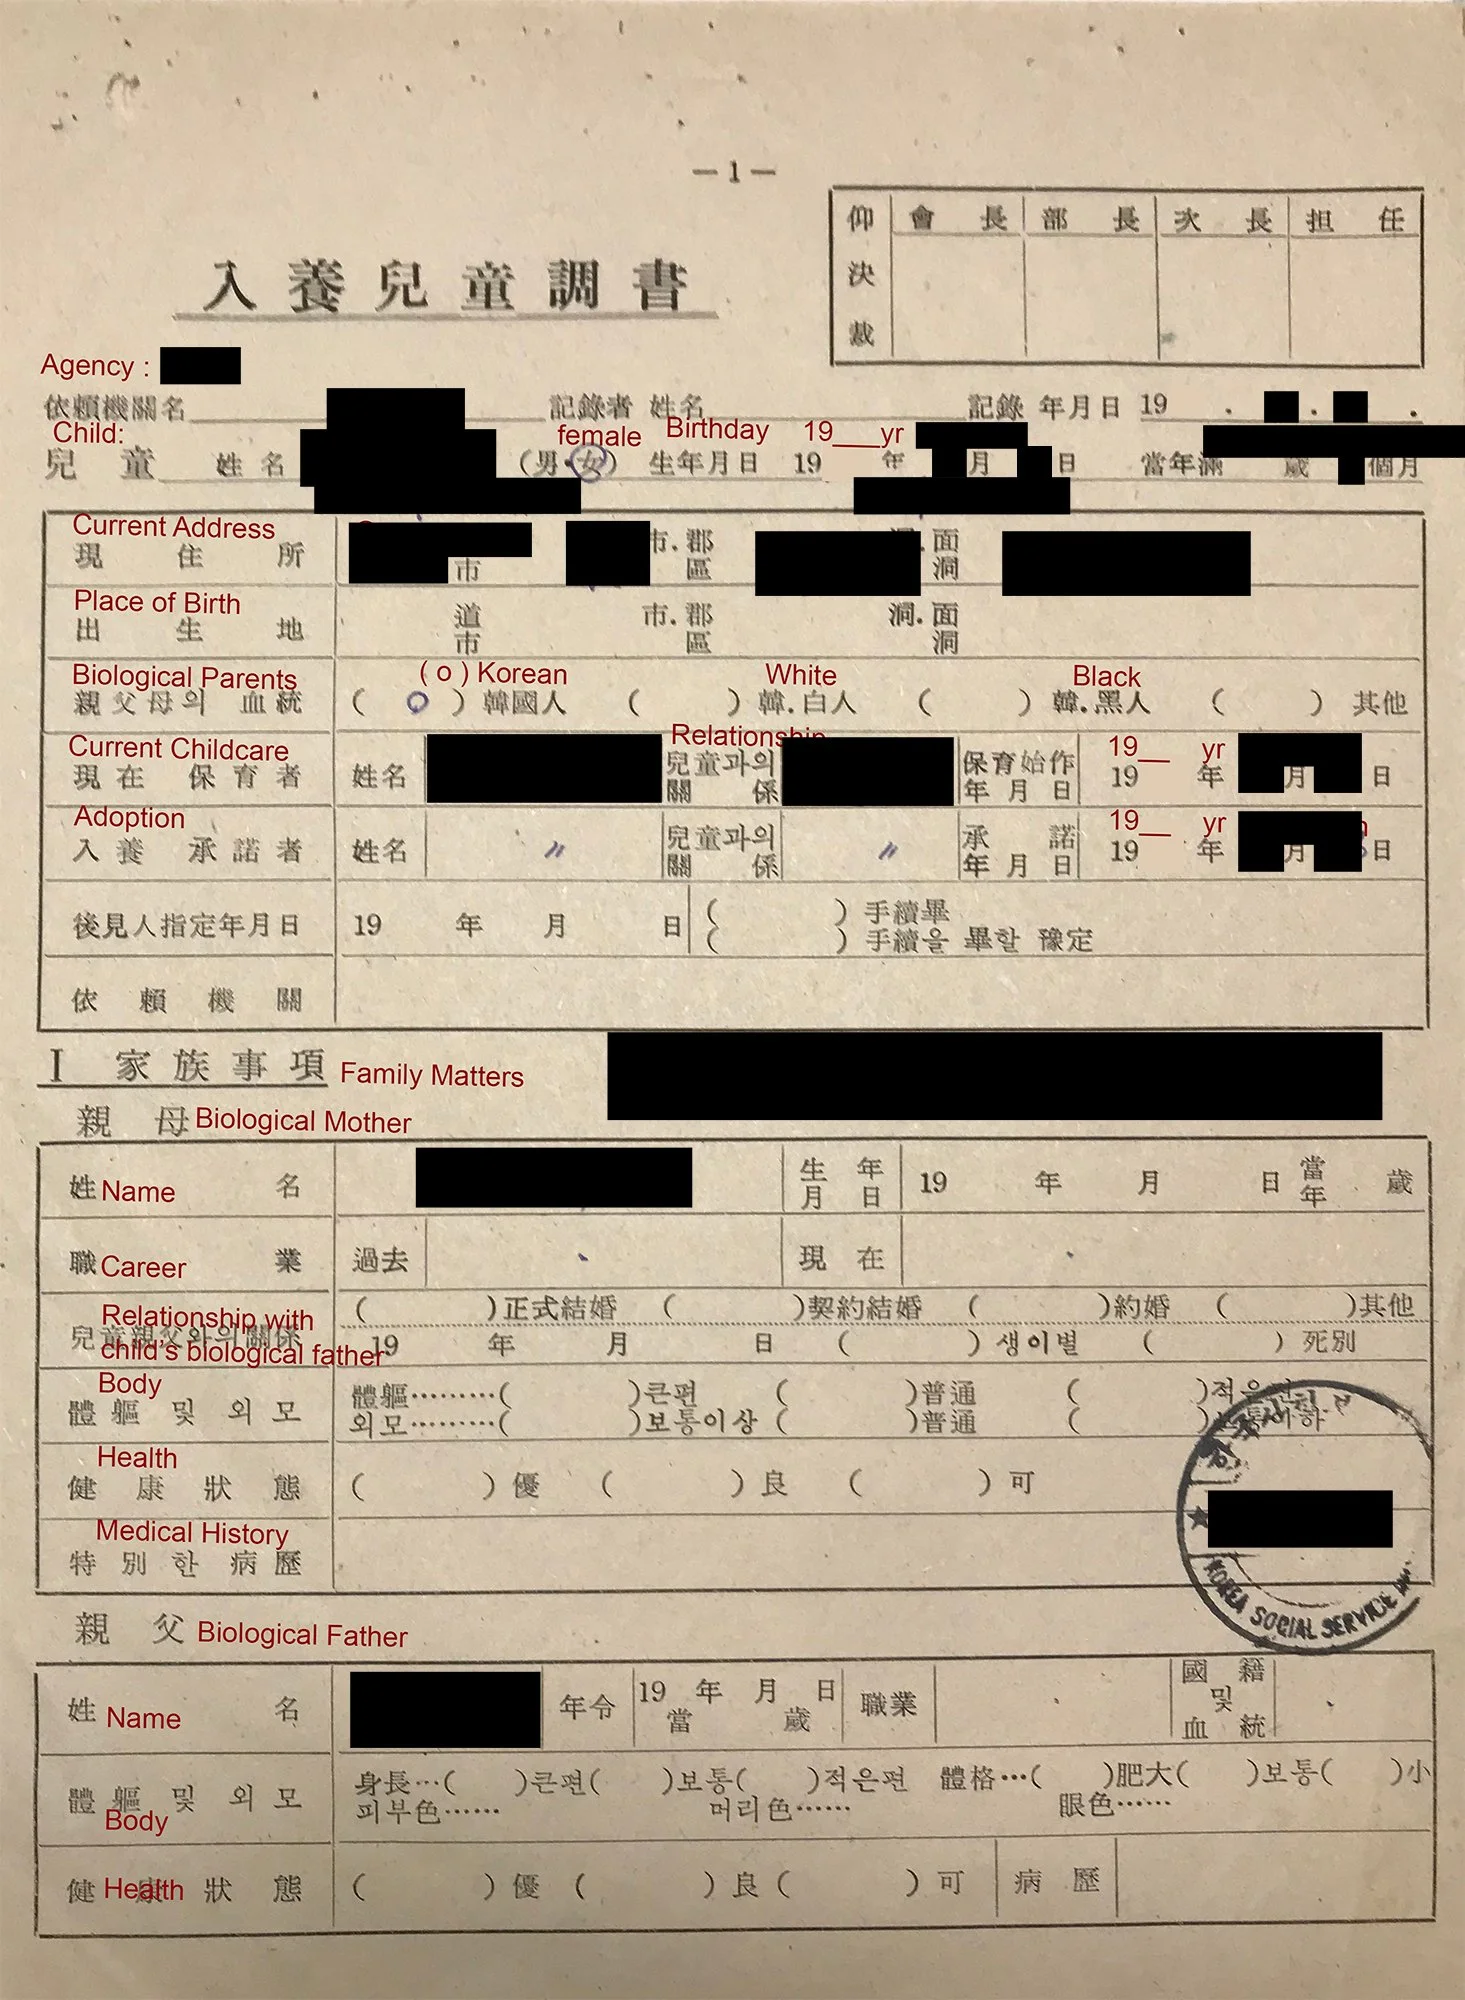 — 1 —
仰決裁 會長 部長 次長 担任
入養兒童調書
Agency :
依賴機關名 記錄者 姓名 記錄 年月日 19 . . .
Child: female Birthday 19___yr
兒童 姓名 (男·女) 生年月日 19 年 月 日 當年滿 歲 個月
Current Address
現住所 市 市.郡 區 .面 洞
Place of Birth
出生地 道 市 市.郡 區 洞.面 洞
Biological Parents ( o ) Korean White Black
親父母의 血統 ( O ) 韓國人 ( ) 韓.白人 ( ) 韓.黑人 ( ) 其他
Current Childcare Relationship 19__ yr
現在 保育者 姓名 兒童과의 關係 保育始作 年月日 19 年 月 日
Adoption 19__ yr
入養 承諾者 姓名 〃 兒童과의 關係 〃 承諾 年月日 19 年 月 日
後見人指定年月日 19 年 月 日 ( ) 手續畢
( ) 手續을 畢할 豫定
依賴機關
I 家族事項 Family Matters
親母 Biological Mother
姓名 Name 生年月日 19 年 月 日 當年 歲
職業 Career 過去 現在
Relationship with child's biological father
兒童親父와의關係 ( )正式結婚 ( )契約結婚 ( )約婚 ( )其他
19 年 月 日 ( )생이별 ( )死別
Body
體軀 및 외모 體軀………( )큰편 ( )普通 ( )적은편
외모………( )보통이상 ( )普通 ( )
Health
健康狀態 ( )優 ( )良 ( )可
Medical History
特別한 病歷
★
KOREA SOCIAL SERVICE
親父 Biological Father
姓名 Name 年令 19 年 月 日 當 歲 職業 國籍 및 血統
體軀 및 외모 身長…( )큰편( )보통( )적은편 體格…( )肥大( )보통( )小
Body 피부色…… 머리色…… 眼色……
健康狀態 Health ( )優 ( )良 ( )可 病歷